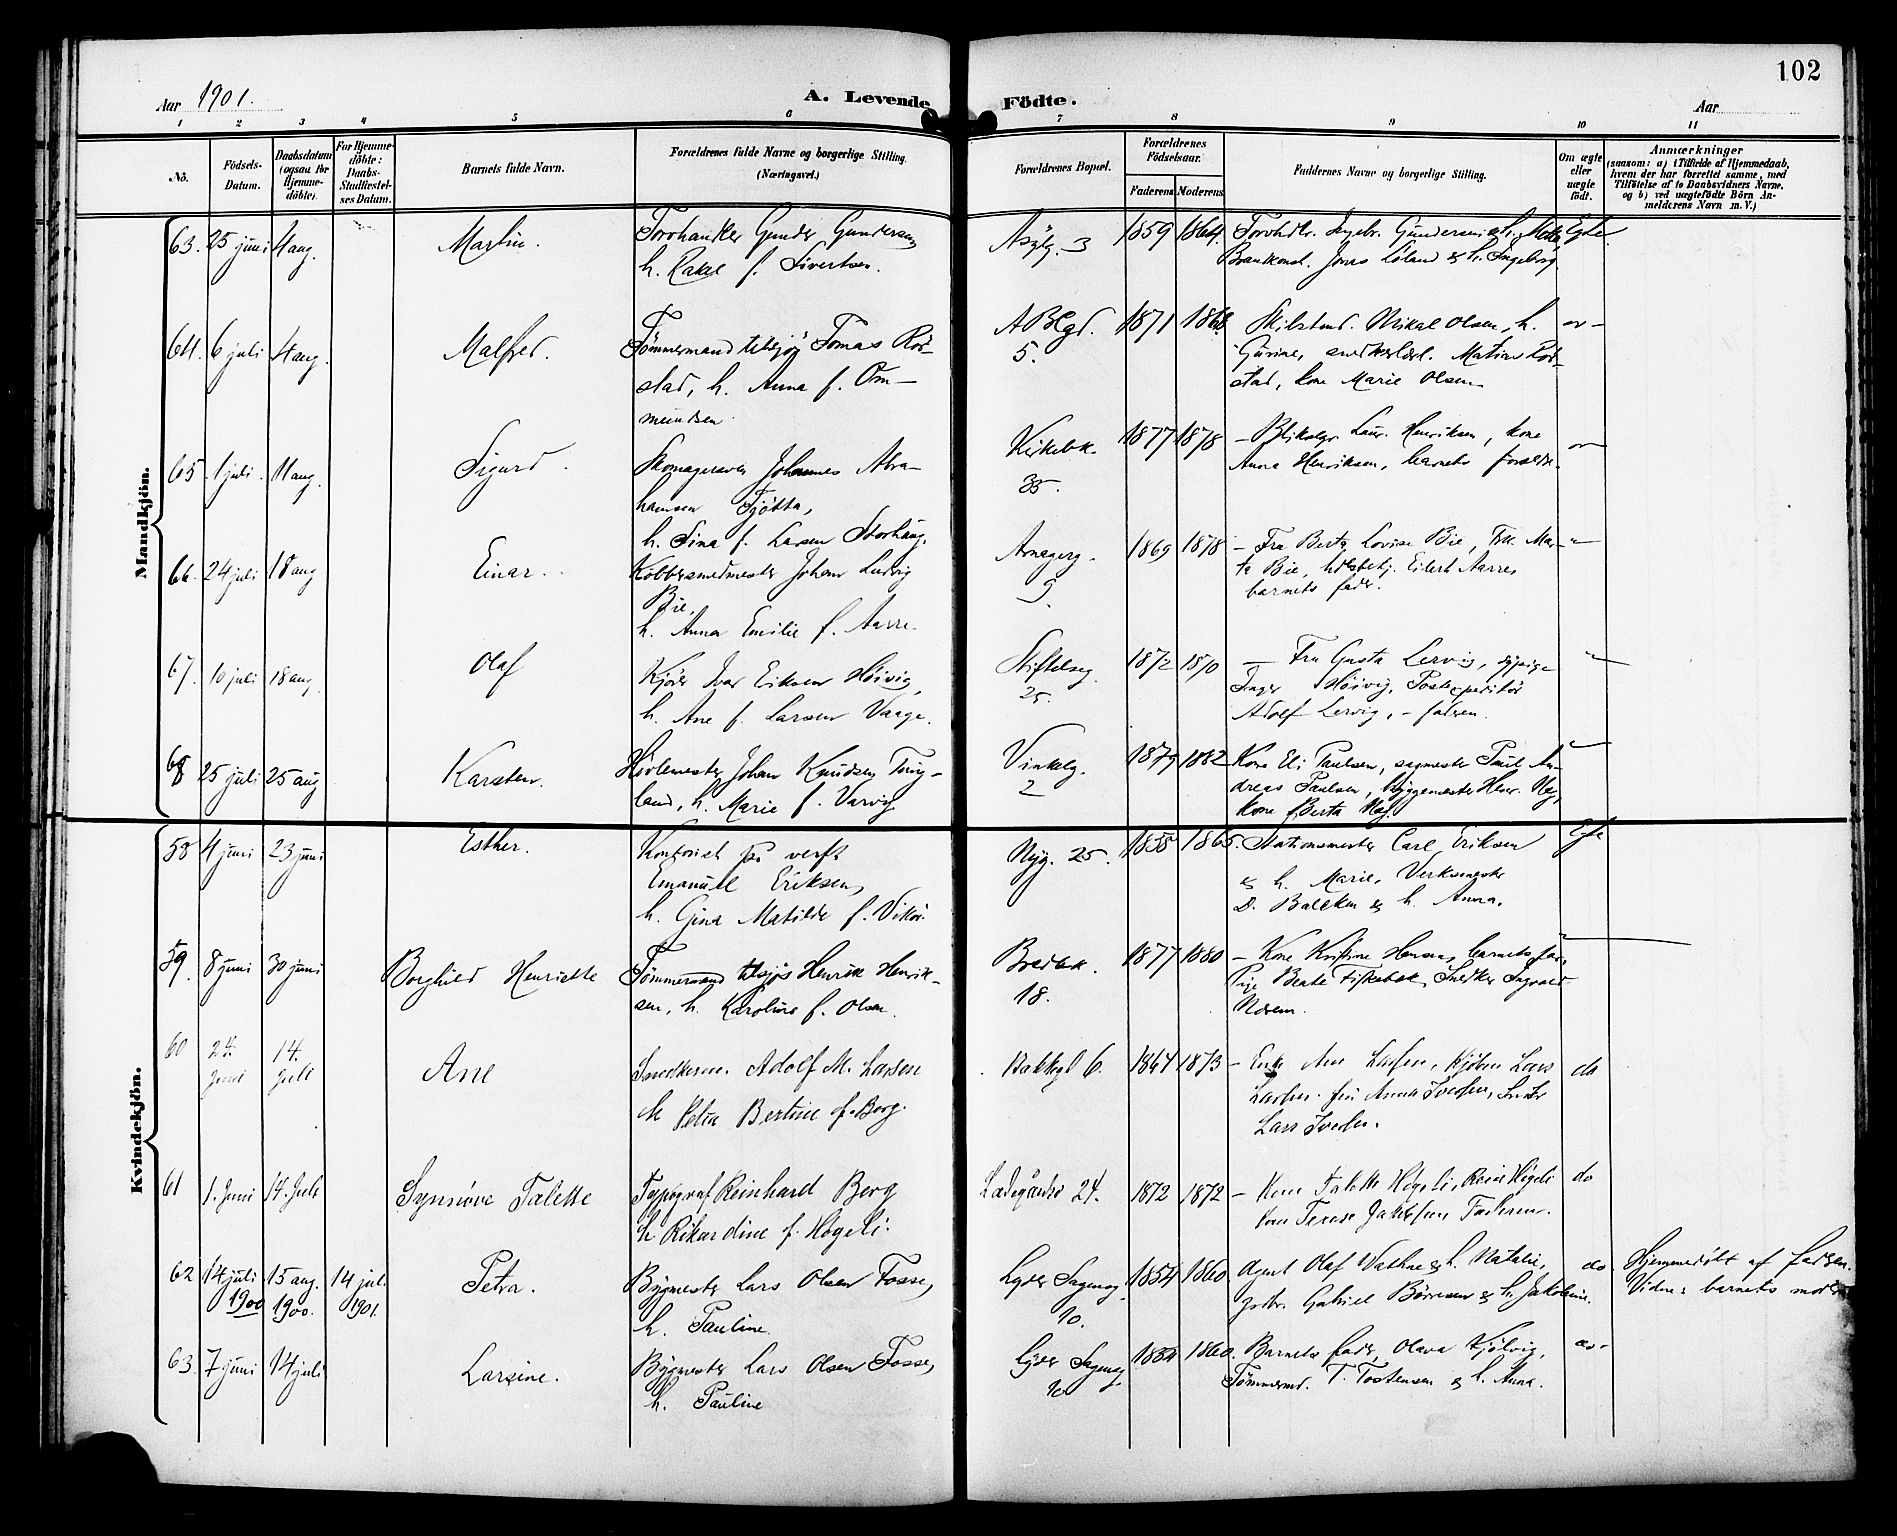 102
Aar 1901.
A. Levende Födte.
Aar
1 2 3 4 5 6 7 8 9 10 11
No.
Födsels-Datum.
Daabsdatum (ogsaa for Hjemmedöbte).
For Hjemmedöbte: Daabs-Stadfæstelses Datum.
Barnets fulde Navn.
Forældrenes fulde Navne og borgerlige Stilling.
(Næringsvei.)
Forældrenes Bopæl.
Forældrenes Födselsaar.
Faderens Moderens
Faddernes Navne og borgerlige Stilling.
Om ægte eller uægte født.
Anmærkninger
(saasom: a) i Tilfælde af Hjemmedaab,
hvem der har forrettet samme, med
Tilföielse af to Daabsvidners Navne,
og b) ved uægtefödte Börn An-
melderens Navn m. V.)
Mandkjön.
63. 25 juni 4 aug. Martin. Torvhandler Gunder Gundersen
h. Rakel f. Sivertsen.
3 1859 1864. Torvhdlr. Ingebr. Gundersen Ægte
Jonas Löland & h. Ingeborg.
64. 6 juli 4 aug. Malfred. Tømmermand tilsjøs Tomas Rös-
stad, h. Anna f. Om-
mundsen
5. 1871 1868 Mikal Olsen, h.
Gurine,
stad, kone Marie Olsen
65 1 juli. 11 aug. Sigurd. Skomagersven Johannes Abra-
hamsen Tjøtta,
h. Sina f. Larsen Storhaug.
Kirkebk. 35. 1877 1878 Laur. Henriksen, kone
Anna Henriksen, barnets forældre.
66. 24 juli 18 aug Einar. Kobbersmedmester Johan Ludvig
Bie,
h. Anna Emilie f. Aarre.
Arnagerg. 9. 1869 1878 - Fru Berta Lovise Bie, Frk. Mar-
ta Bie, Eilert Aarre,
barnets fader.
67. 10 juli 18 aug. Olaf Kjører Ivar Eriksen Höivig,
h. Ane f. Larsen Vaage.
Stiftelseg. 25. 1872 1870 - Fru Gusta Lervig, sypige
Inger Höivig, Postexpeditör
Adolf Lervig, - faderen.
68 25 juli 25 aug Karsten. Høvlemester Johan Knudsen Tung-
land, h. Marie f. Varvig
Vinkelg. 2 1879 1882 Kone Eli Paulsen, sagmester Paul An-
dreas Paulsen, byggemester Henr. Hag,
kone Berta Hag.
Kvindekjön.
58 4 juni 23 juni Esther. Kontorist verft
Emanuel Eriksen,
h. Gina Matilde f. Vikør.
Nyg. 25. 1858 1865. Stationsmester Carl Eriksen Egte
& h. Marie, Verksmester
D. Balchen & h. Anna.
59. 8 juni 30 juni Borghild Henriette Tømmermand tilsjøs Henrik Henrik-
sen, h. Karoline f. Olsen.
Bredbk. 18. 1877 1880 - Kone Kristine Hansen, barnets far,
Pige Beate Fiskebæk, Snedker Ingvald
60 24. juni 14. juli Ane Adolf M. Larsen
h Petra Bertine f. Borg.
Bakkegt 6. 1867 1873 - Enke Ane Larsen, Kjøbm Lars do
Larsen. frü Anna
Lars
61 1. Juni 14. Juli Synnöve Talette Typograf Reinhard Berg
h Rikardine f. Högeli.
Ladegårdsv 24. 1872 1872 - Kone Talette Högeli, Högeli do
kone Terese Jakobsen Faderen.
62 14 juli 1900 15 aug. 1900. 14 jul. 1901. Petra. Bygmester Lars Olsen Fosse,
h. Pauline.
Lyder Sagensg. 10. 1854 1860 Agent Olaf Wathne & h. Natalie, do Hjemmedöbt af faderen.
Gabriel Börresen & h. Jakobine. Vidne: barnets moder
63. 7 juni 14 juli Larsine. Bygmester Lars Olsen Fosse,
h. Pauline
Lyder Sagensg 10 1854 1860. Barnets fader, Olava Kjölvig, do-
Tömmermd. T. Tostensen & h. Anna.